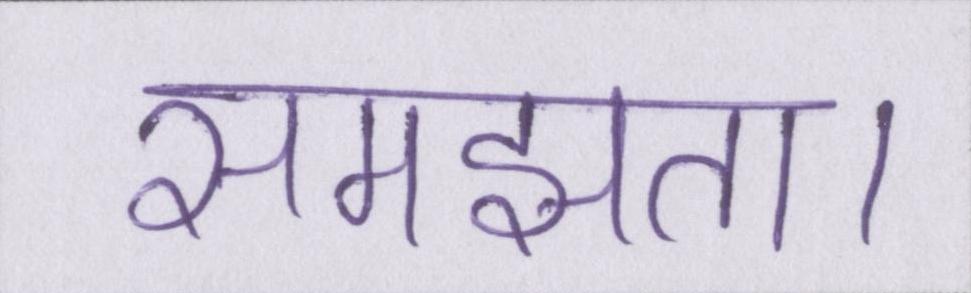 समझता।